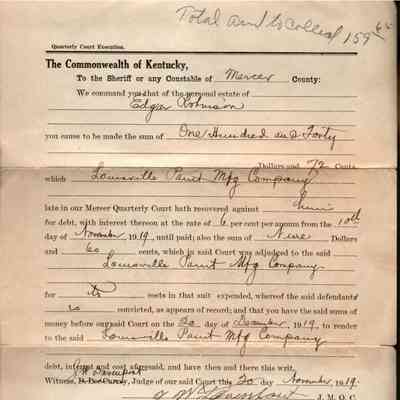 Total amt to collect 159 65
Quarterly Court Execution.
The Commonwealth of Kentucky,
To the Sheriff or any Constable of Mercer County:
We command you that of the personal estate of
Edgar Robinson
you cause to be made the sum of One Hundred and Forty
Dollars and 72 Cents
which Louisville Paint Mfg Company
late in our Mercer Quarterly Court hath recovered against him
for debt, with interest thereon at the rate of 6 per cent per annum from the 10th
day of November 1919, until paid; also the sum of Nine Dollars
and 60 cents, which in said Court was adjudged to the said
Louisville Paint Mfg Company
for its costs in that suit expended, whereof the said defendants
is convicted, as appears of record; and that you have the said sums of
money before our said Court on the 20 day of December, 1919, to render
to the said Louisville Paint Mfg Company
debt, interest and cost aforesaid, and have then and there this writ,
J W Davenport
Witness, Judge of our said Court this 20 day November, 1919.
J W Davenport J. M. Q. C.